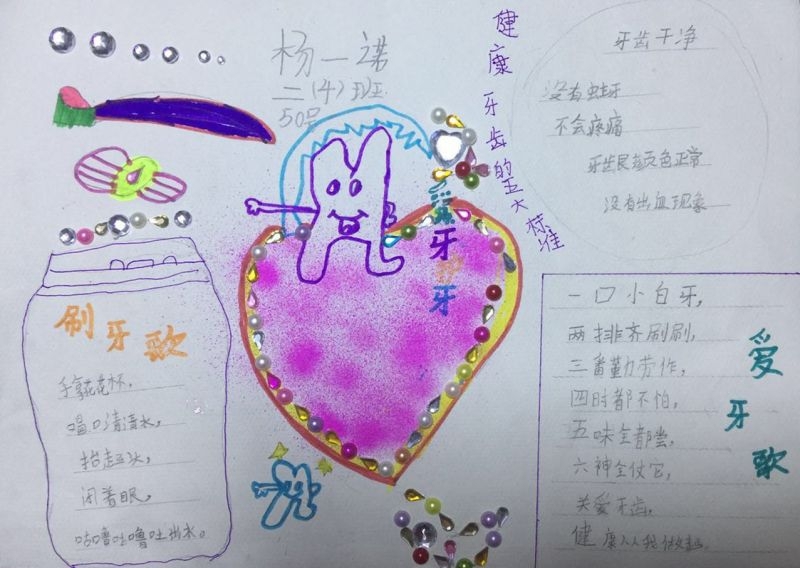 杨一诺
二(4)班
50号
健康牙齿的五大标准
牙齿干净
没有蛀牙
不会疼痛
牙齿民颜色正常
没有出血现象
爱牙护牙
刷牙歌
手拿花杯,
喝口清清水,
抬起头,
闭着眼,
咕噜咕噜吐出水。
爱牙歌
一口小白牙,
两排齐刷刷,
三番勤劳作,
四时都不怕,
五味全都尝,
六神全仗它,
关爱牙齿,
健康人人我做起。